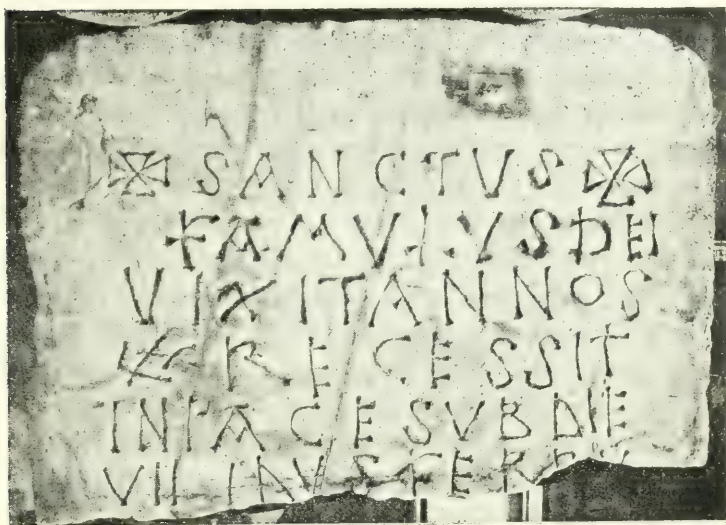 ✠ SANCTVS ✠
FAMVLVS DEI
VIXIT ANNOS
RECESSIT
IN PACE SVB DIE
VII IDVS